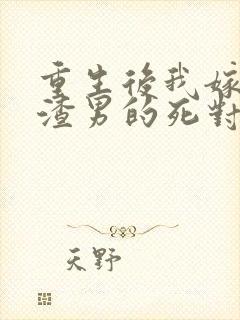 重生後我嫁
渣男的死對
天野